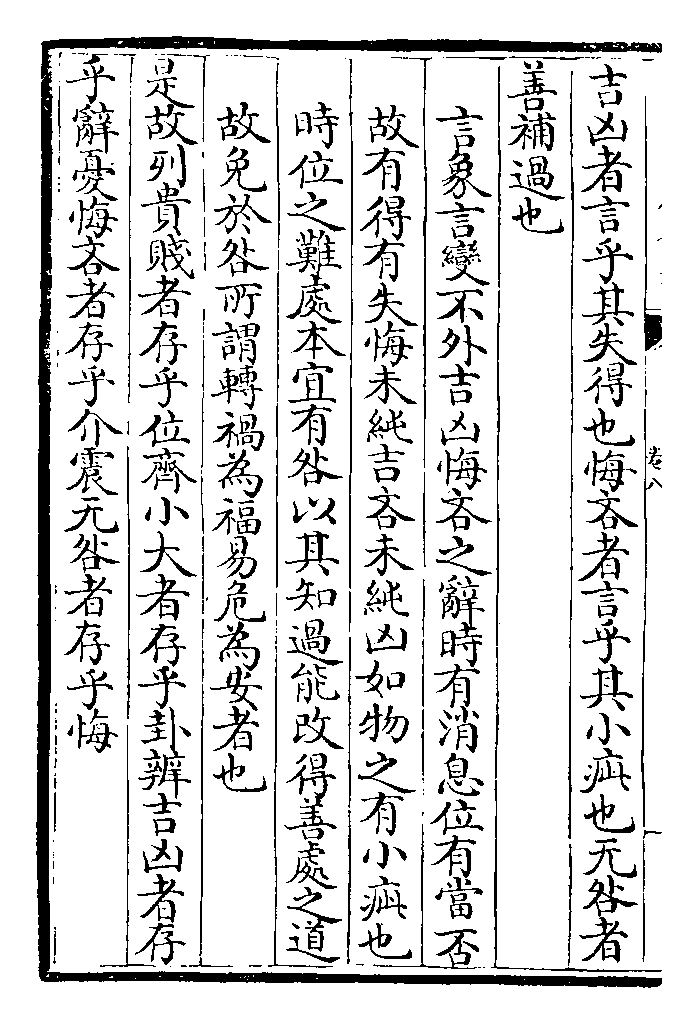 吉凶者言乎其失得也悔吝者言乎其小疵也无咎者
善補過也
言象言變不外吉凶悔吝之辭時有消息位有當否
故有得有失悔未純吉吝未純凶如物之有小疵也
時位之難處本宜有咎以其知過能改得善處之道
故免於咎所謂轉禍為福易危為安者也
是故列貴賤者存乎位齊小大者存乎卦辨吉凶者存
乎辭憂悔吝者存乎介震无咎者存乎悔
卷八